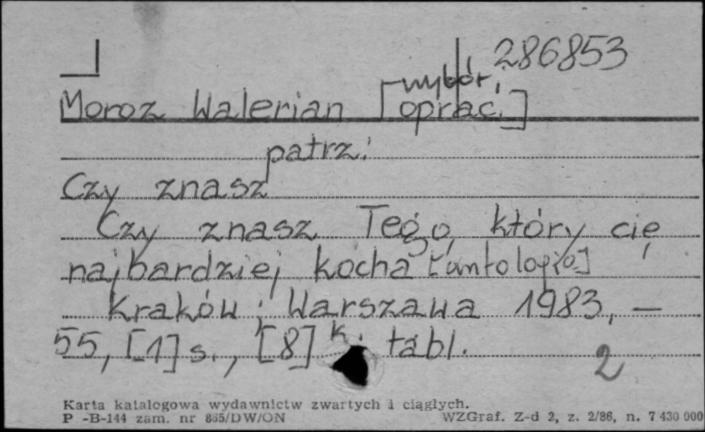 286853
Moroz Walerian [wybór,
oprac.]
patrz:
Czy znasz
Czy znasz Tego, który cię
najbardziej kocha [antologia]
Kraków ; Warszawa 1983, —
55, [1] s., [8] k. tabl.
2
Karta katalogowa wydawnictw zwartych i ciągłych.
P -B-144 zam. nr 865/DW/ON WZGraf. Z-d 2, z. 2/86, n. 7 430 000